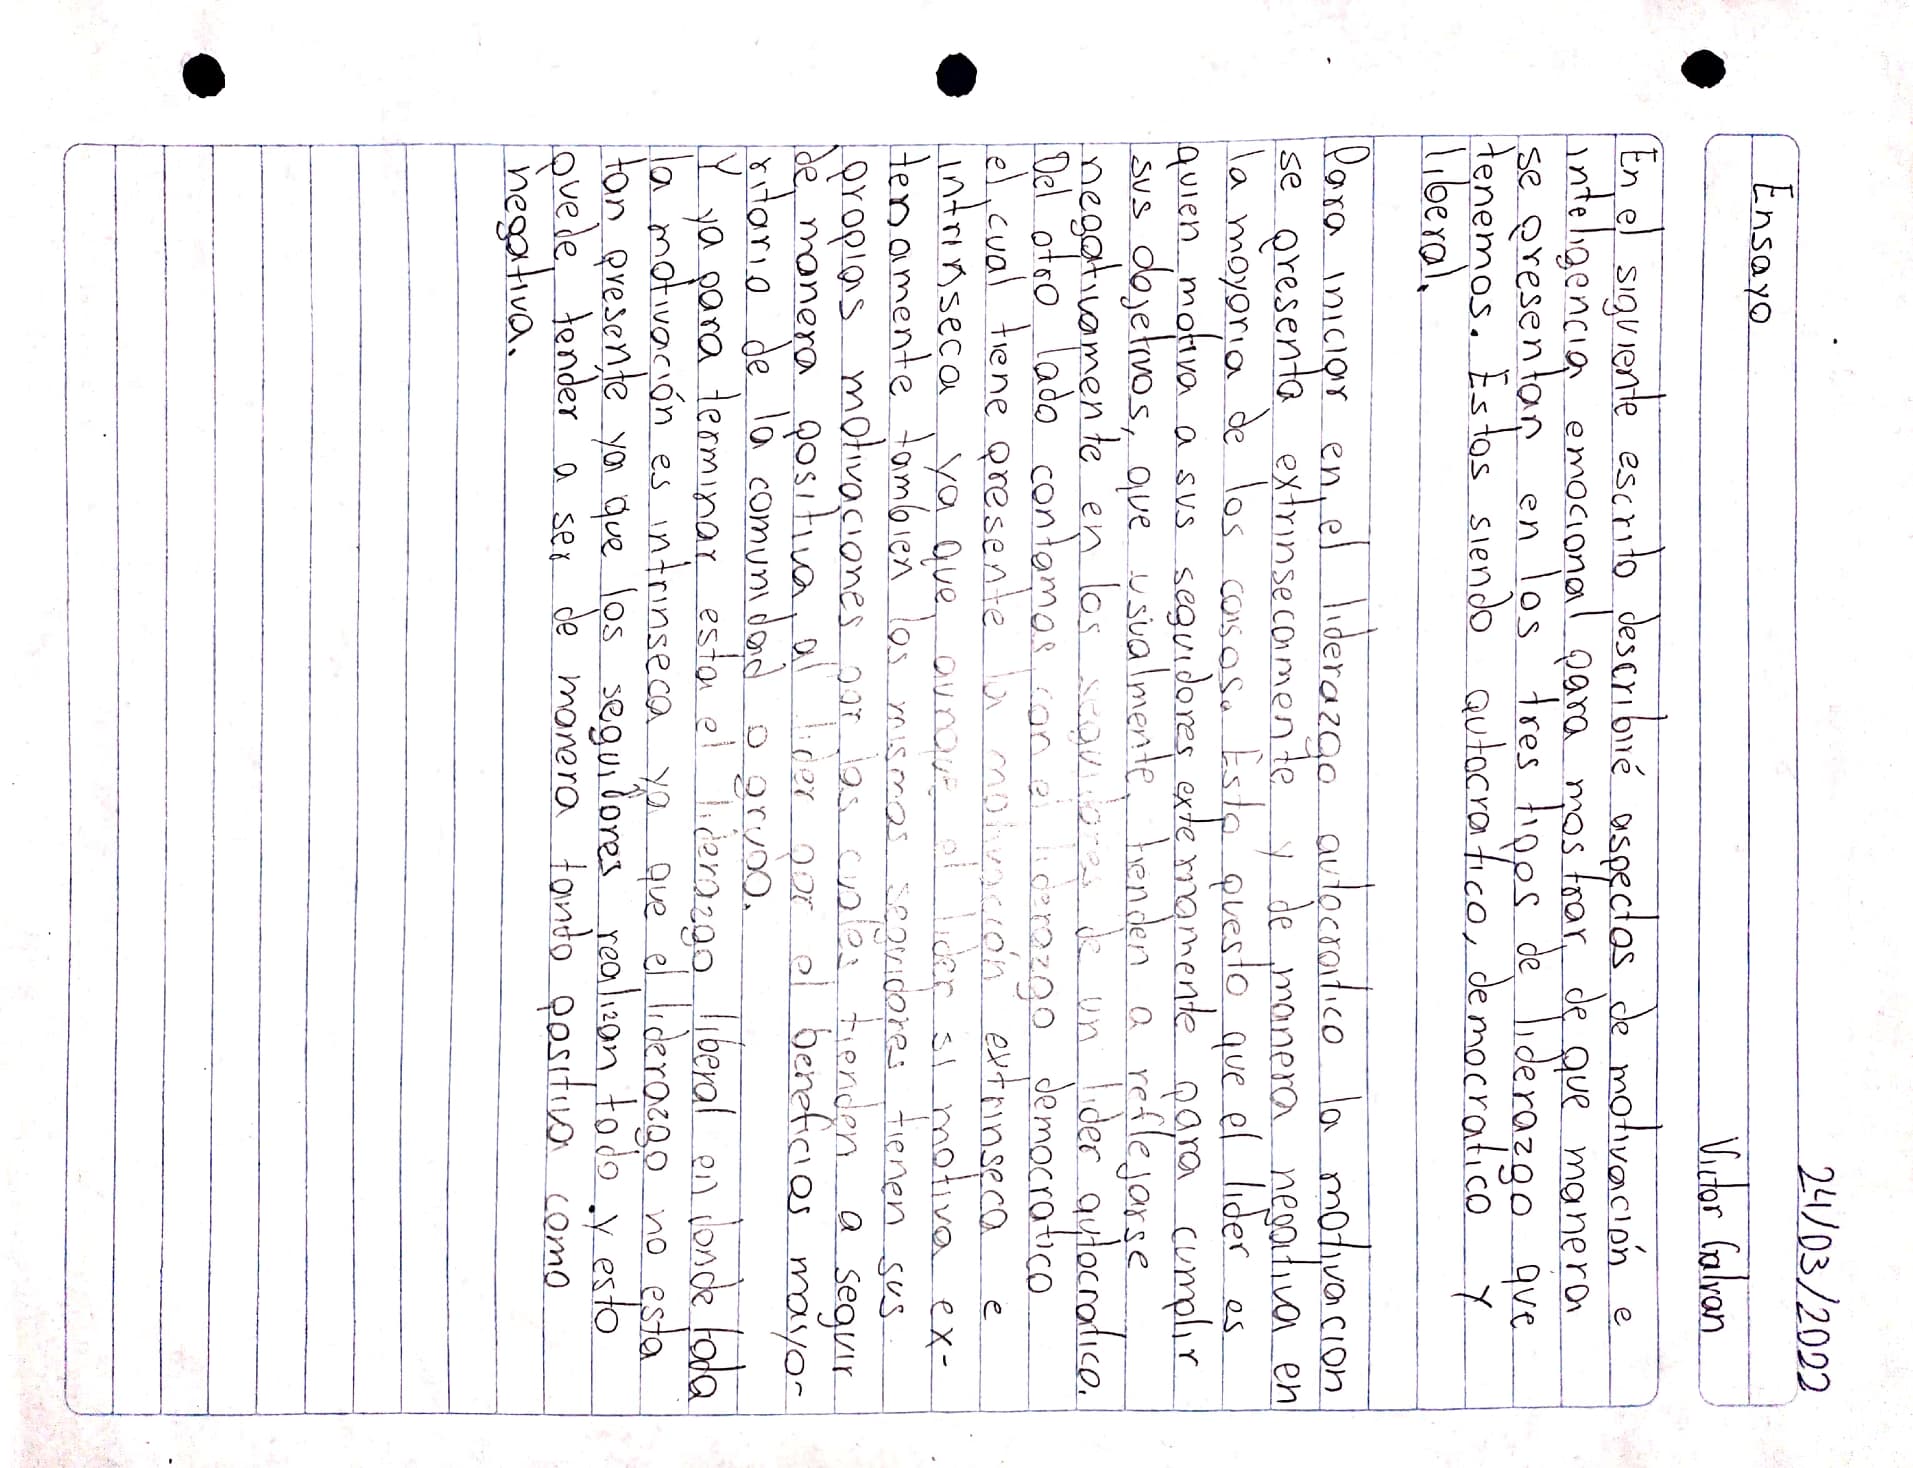 24/03/2022
Ensayo
Victor Galvan
En el siguiente escrito describiré aspectos de motivación e
inteligencia emocional para mostrar de que manera
se presentan en los tres tipos de liderazgo que
tenemos. Estos siendo autocratico, democratico y
liberal.
Para iniciar en el liderazgo autocratico la motivacion
se presenta extrinsecamente y de manera negativa en
la mayoria de los casos. Esto puesto que el lider es
quien motiva a sus seguidores externamente para cumplir
sus objetivos, que usualmente tienden a reflejarse
negativamente en los seguidores de un lider autocratico.
Del otro lado contamos con el liderazgo democratico
el cual tiene presente la motivación extrinseca e
intrinseca ya que aunque el lider si motiva ex-
tenamente tambien los mismos seguidores tienen sus
propias motivaciones por las cuales tienden a seguir
de manera positiva al lider por el beneficios mayo-
ritario de la comunidad o grupo.
Y ya para terminar esta el liderazgo liberal en donde toda
la motivación es intrinseca ya que el liderazgo no esta
tan presente ya que los seguidores realizan todo y esto
puede tender a ser de manera tanto positiva como
negativa.